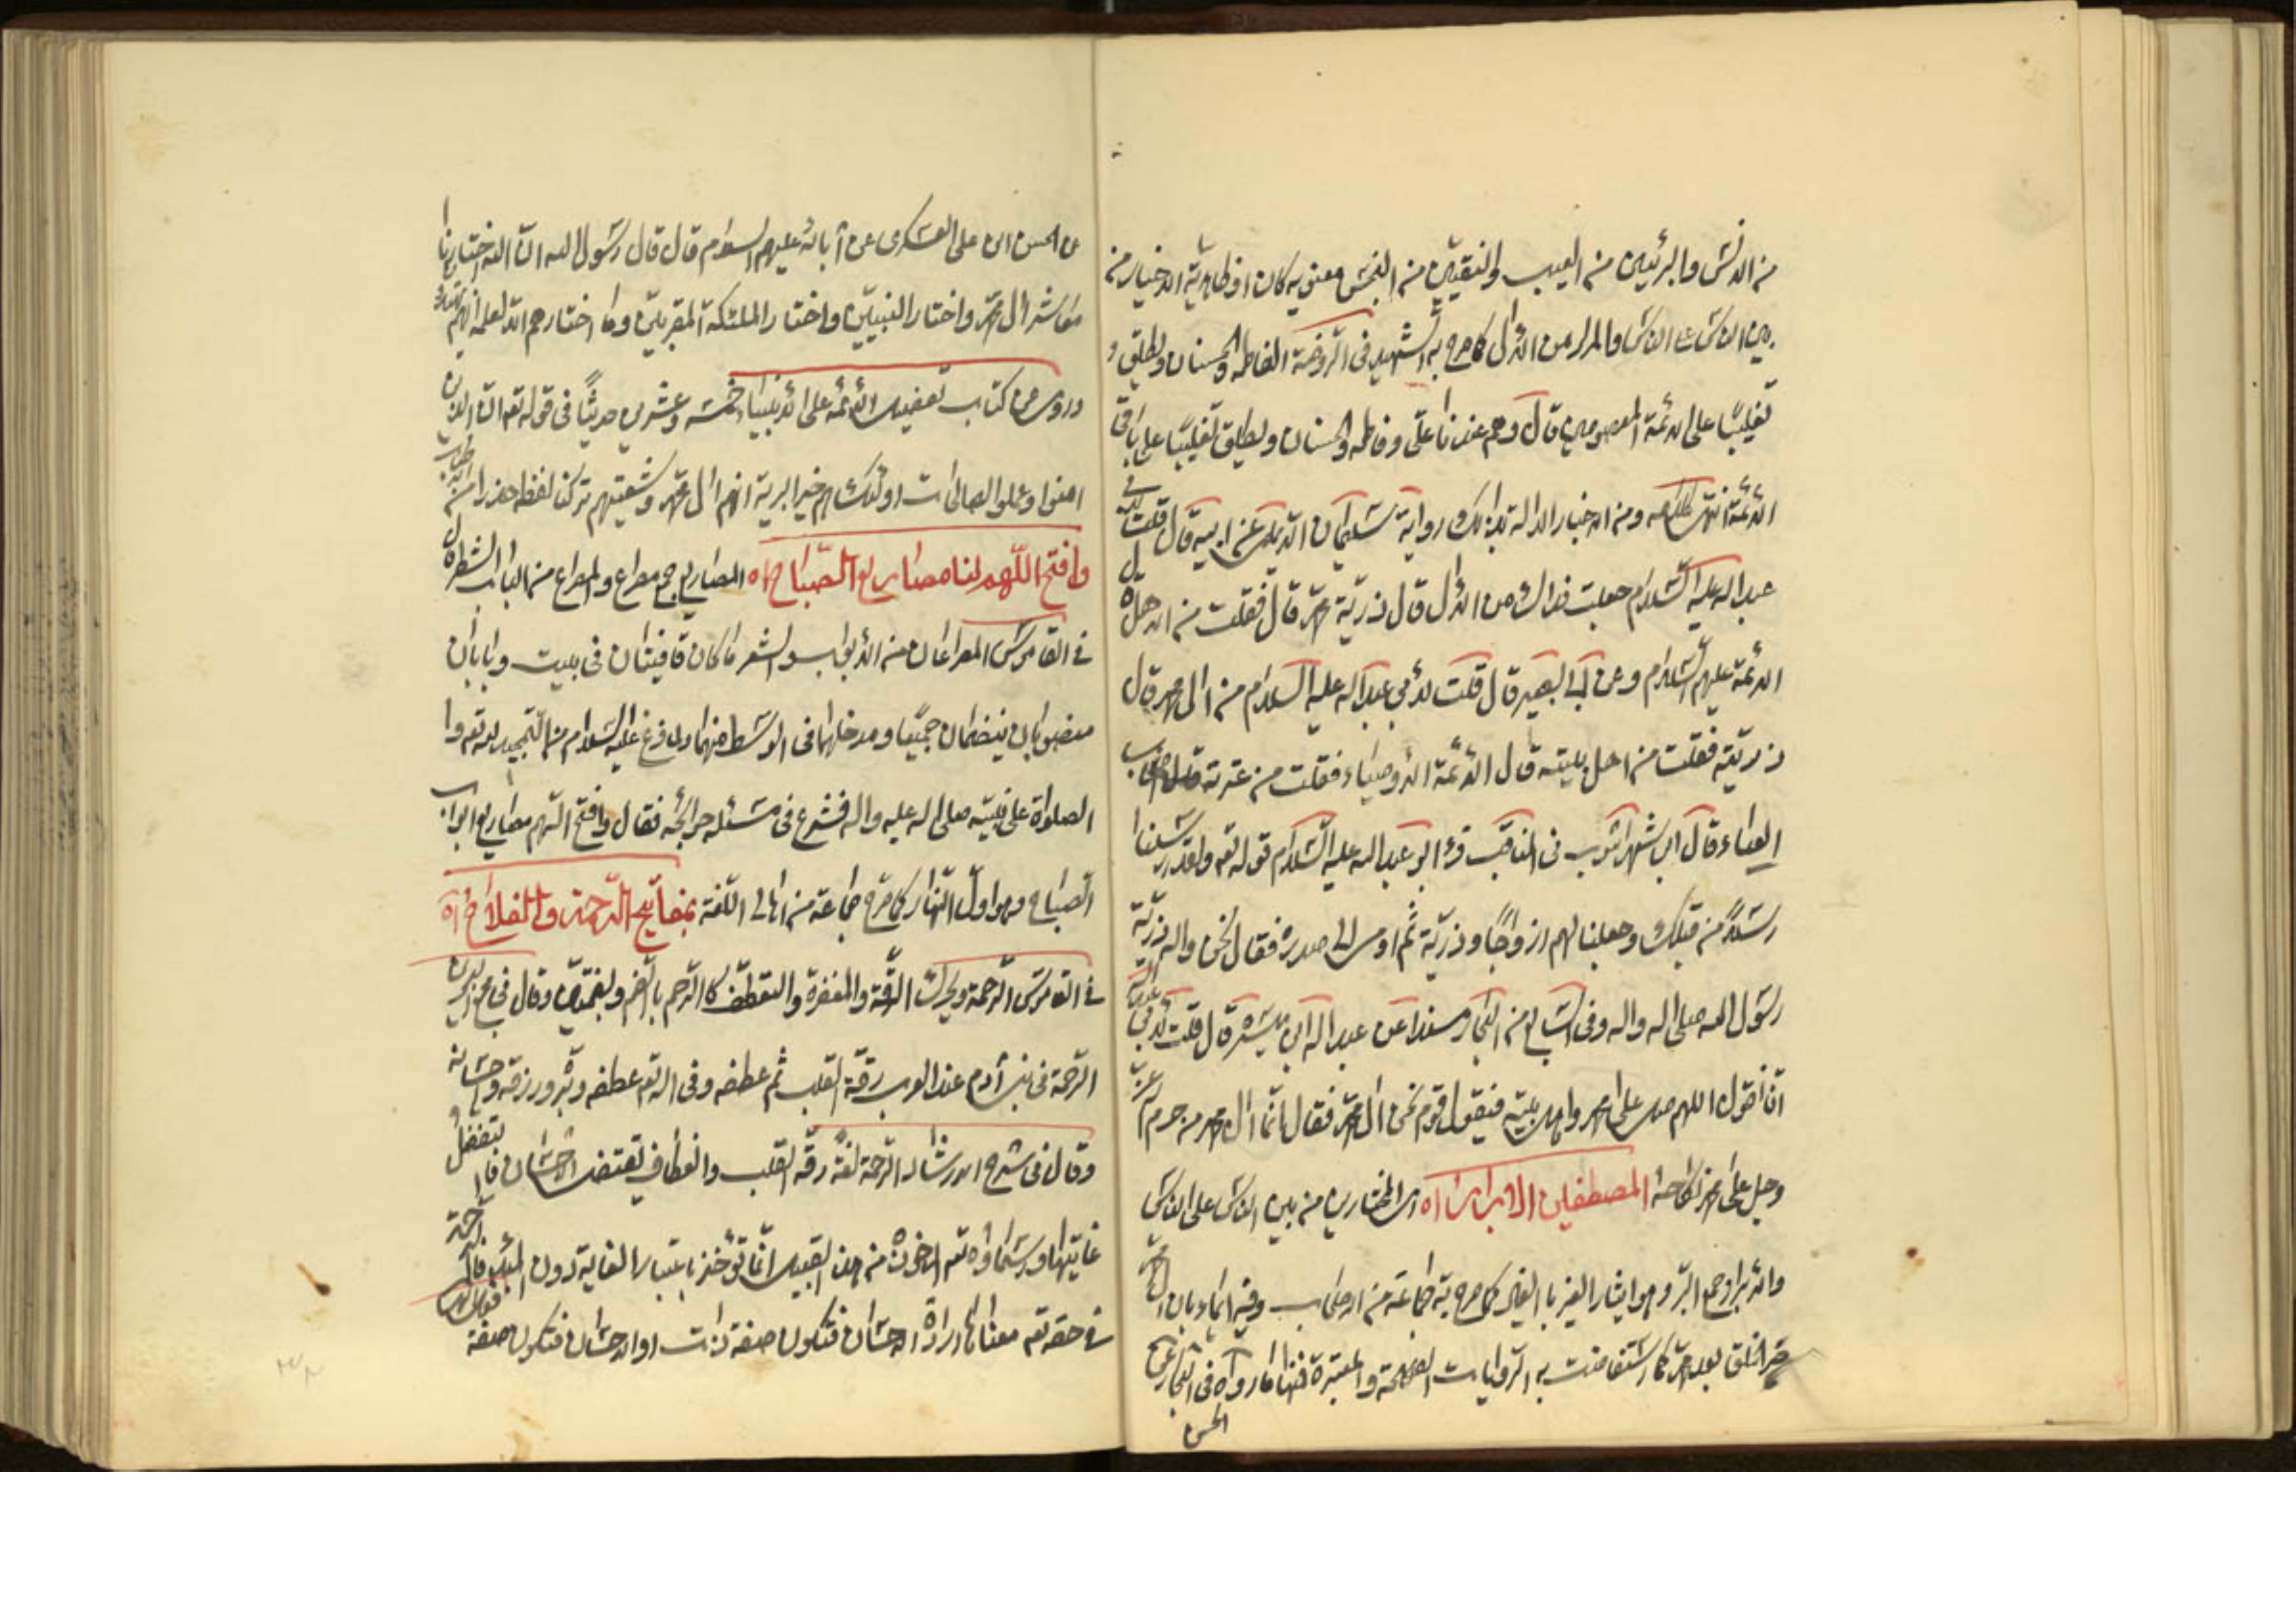 من الدنس والبرئين من العيب والنقيين من النجس معنويه كان او ظاهرية الاخيار من
بين الناس على الناس والمراد من الآل كما صرح به الشهيد في الروضة الفاطمه والحسنان ويطلق
تغليبًا على الائمة المعصومين قال وهم عندنا علي وفاطمه والحسنان ويطلق تغليبًا على باقي
الائمة انتهى كلامه ومن الاخبار الدالة بذلك رواية سليمان الديلمي عن ابيه قال قلت لابي
عبد الله عليه السلام جعلت فداك من الآل قال ذرية محمد قال فقلت من الاهل قال
الائمة عليهم السلام وعن ابي البصير قال قلت لابي عبد الله عليه السلام من آل محمد قال
ذريته فقلت من اهل بيته قال الائمة الاوصياء فقلت من عترته قال اصحاب
العباء وقال ابن شهرآشوب في المناقب قرء ابو عبد الله عليه السلام قوله تعه ولقد ارسلنا
رسلًا من قبلك وجعلنا لهم ازواجًا وذرية ثم اومى الى صدره فقال نحن والله ذرية
رسول الله صلى الله واله وفي السابع من البحار مسندا عن عبد الله ابن ميسرة قال قلت لابي عبد الله
انا نقول اللهم صل على محمد واهل بيته فيقول قوم نحن آل محمد فقال انما آل محمد من حرم الله عز
وجل على محمد نكاحه المصطفين الابرار اه اى المختارين من بين الناس على الناس
والابرار جمع البر وهو ايثار الغير بالخير كما صرح به جماعة من الاصحاب وفيه ايماء بان آل محمد
خير الخلق بعد محمد كما استفاضت به الروايات الصحيحة والمعتبرة فمنها ما رواه في البحار عن
الحسن
عن الحسن ابن على العسكرى عن آبائه عليهم السلام قال قال رسول الله ان الله اختارنا
معاشر آل محمد واختار النبيين واختار الملئكة المقربين وما اختارهم الا لعلمه انهم
وروى من كتاب تفضيل الائمه على الانبياء خمسة وعشرين حديثًا في قوله تعه ان الذين
امنوا وعملوا الصالحات اولئك هم خير البرية انهم آل محمد وشيعتهم تركنا لفظه حذرا من الاطناب
وافتح اللهم لنا مصاريع الصباح اه المصاريع جمع مصراع والمصراع من الباب الشطر قال
في القاموس المصراعان من الابواب والشعر ما كان قافيتان في بيت وبابان
منصوبان ينضمان جميعًا ومدخلهما في الوسط منهما ولما فرغ عليه السلام من التمجيد لله تعه وا
الصلواة على نبيه صلى الله عليه واله فشرع في مسئلة حوائجه فقال وافتح اللهم مصاريع ابواب
الصباح وهو اول النهار كما صرح جماعة من اهالى اللغة بمفاتيح الرحمة والفلاح اه
في القاموس الرحمة ويحرك الرقة والمغفرة والتعطف كالرحم بالضم وبضمتين وقال في مجمع البحرين
الرحمة في بنى آدم عند العرب رقة القلب ثم عطفه وفي الله تعه عطفه وبره ورزقه واحسانه
وقال في شرح الارشاد الرحمة لغة رقة القلب وانعطاف يقتضى الاحسان فالتفضل
غايتها ورسماؤه تعه المأخوذة من هذا القبيل انما تؤخذ باعتبار الغاية دون المبدء فالرحمة
في حقه تعه معناها ارادة الاحسان فتكون صفة ذات او الاحسان فتكون صفة